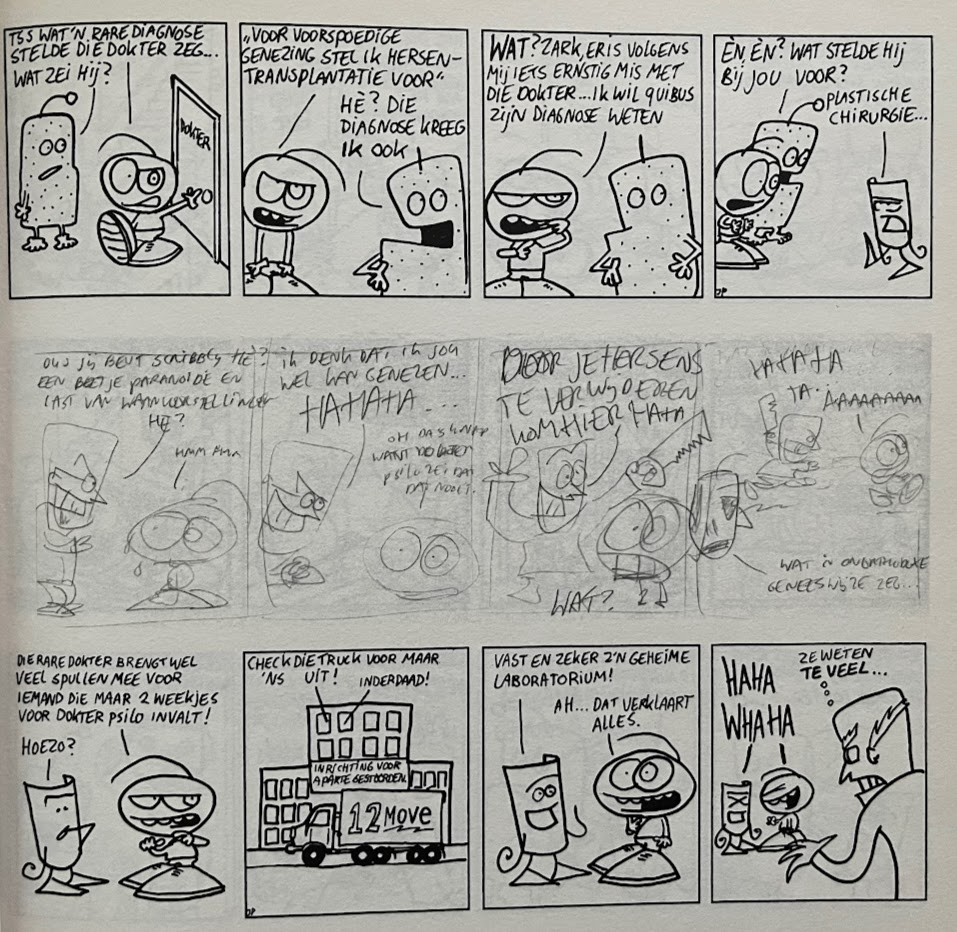 TSS WAT'N RARE DIAGNOSE
STELDE DIE DOKTER ZEG...
WAT ZEI HIJ?
DOKTER
"VOOR VOORSPOEDIGE
GENEZING STEL IK HERSEN-
TRANSPLANTATIE VOOR"
HÈ? DIE
DIAGNOSE KREEG
IK OOK
WAT? ZARK, ER IS VOLGENS
MIJ IETS ERNSTIG MIS MET
DIE DOKTER...IK WIL QUIBUS
ZIJN DIAGNOSE WETEN
ÈN, ÈN? WAT STELDE HIJ
BIJ JOU VOOR?
PLASTISCHE
CHIRURGIE...
DP
DUS JIJ BENT SCRIBBLY HÈ?
EEN BEETJE PARANOÏDE EN
LAST VAN WAANVOORSTELLINGEN
HÈ?
HMM
IK DENK DAT IK JOU
WEL KAN GENEZEN...
HAHAHA...
OH DAS KNAP
WANT DOKTER
PSILO ZEI DAT
DAT NOOIT
DOOR JE HERSENS
TE VERWIJDEREN
KOM HIER HAHA
WAT?
HAHAHA
HA.
AAAAAAAAA
WAT 'N ONORTHODOXE
GENEESWIJZE ZEG...
DIE RARE DOKTER BRENGT WEL
VEEL SPULLEN MEE VOOR
IEMAND DIE MAAR 2 WEEKJES
VOOR DOKTER PSILO INVALT!
HOEZO?
CHECK DIE TRUCK VOOR MAAR
'NS UIT!
INDERDAAD!
INRICHTING VOOR
APARTE GESTOORDEN.
12MOVE
DP
VAST EN ZEKER Z'N GEHEIME
LABORATORIUM!
AH... DAT VERKLAART
ALLES.
HAHA
WHAHA
ZE WETEN
TE VEEL...